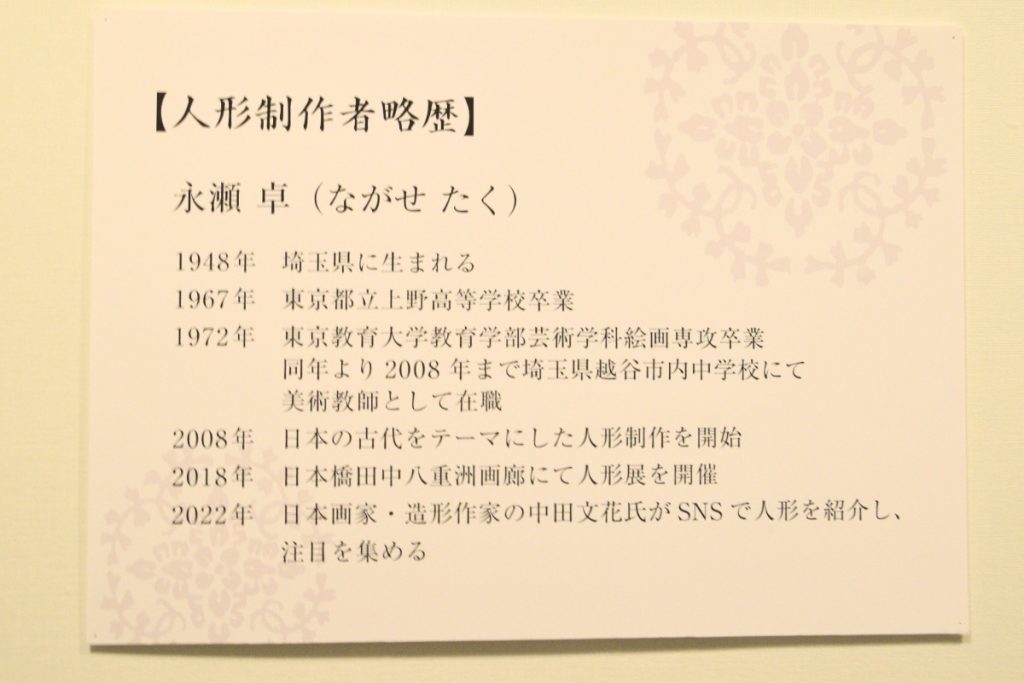 【人形制作者略歴】
永瀬 卓（ながせ たく）
1948年 埼玉県に生まれる
1967年 東京都立上野高等学校卒業
1972年 東京教育大学教育学部芸術学科絵画専攻卒業
同年より 2008 年まで埼玉県越谷市内中学校にて
美術教師として在職
2008年 日本の古代をテーマにした人形制作を開始
2018年 日本橋田中八重洲画廊にて人形展を開催
2022年 日本画家・造形作家の中田文花氏が SNS で人形を紹介し、
注目を集める